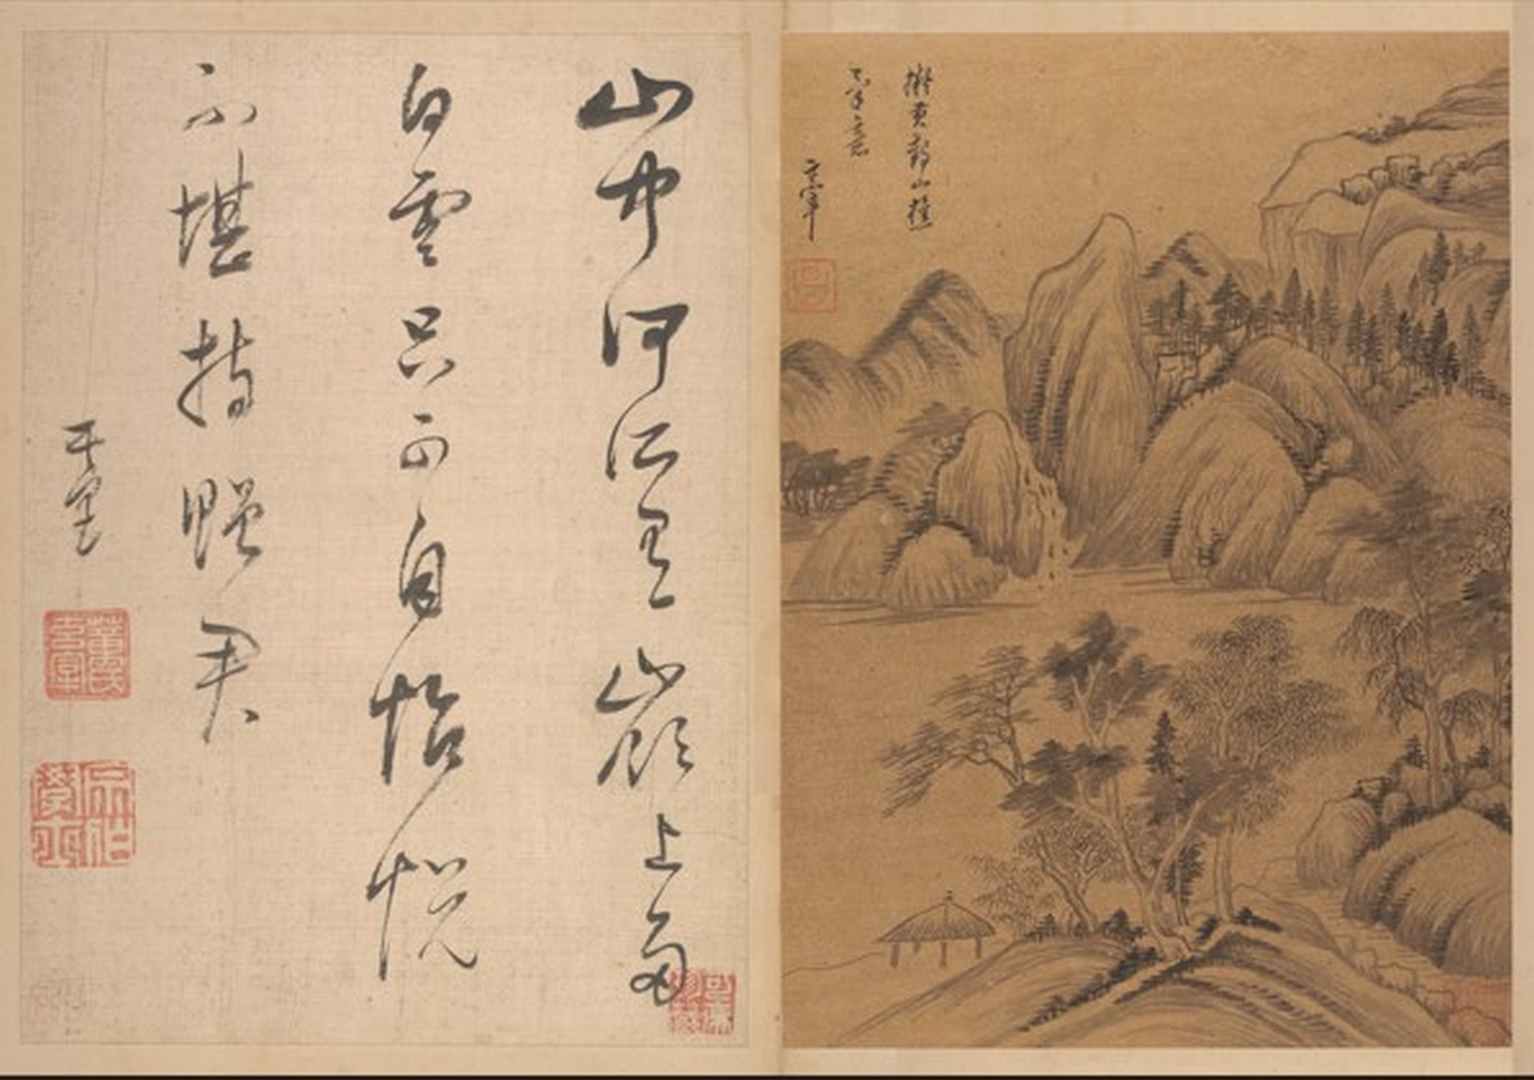 擬黃鶴山樵
玄宰
山中何所有嶺上多
白雲只可自怡悅
不堪持贈君
其昌
董氏玄宰
宗伯學士